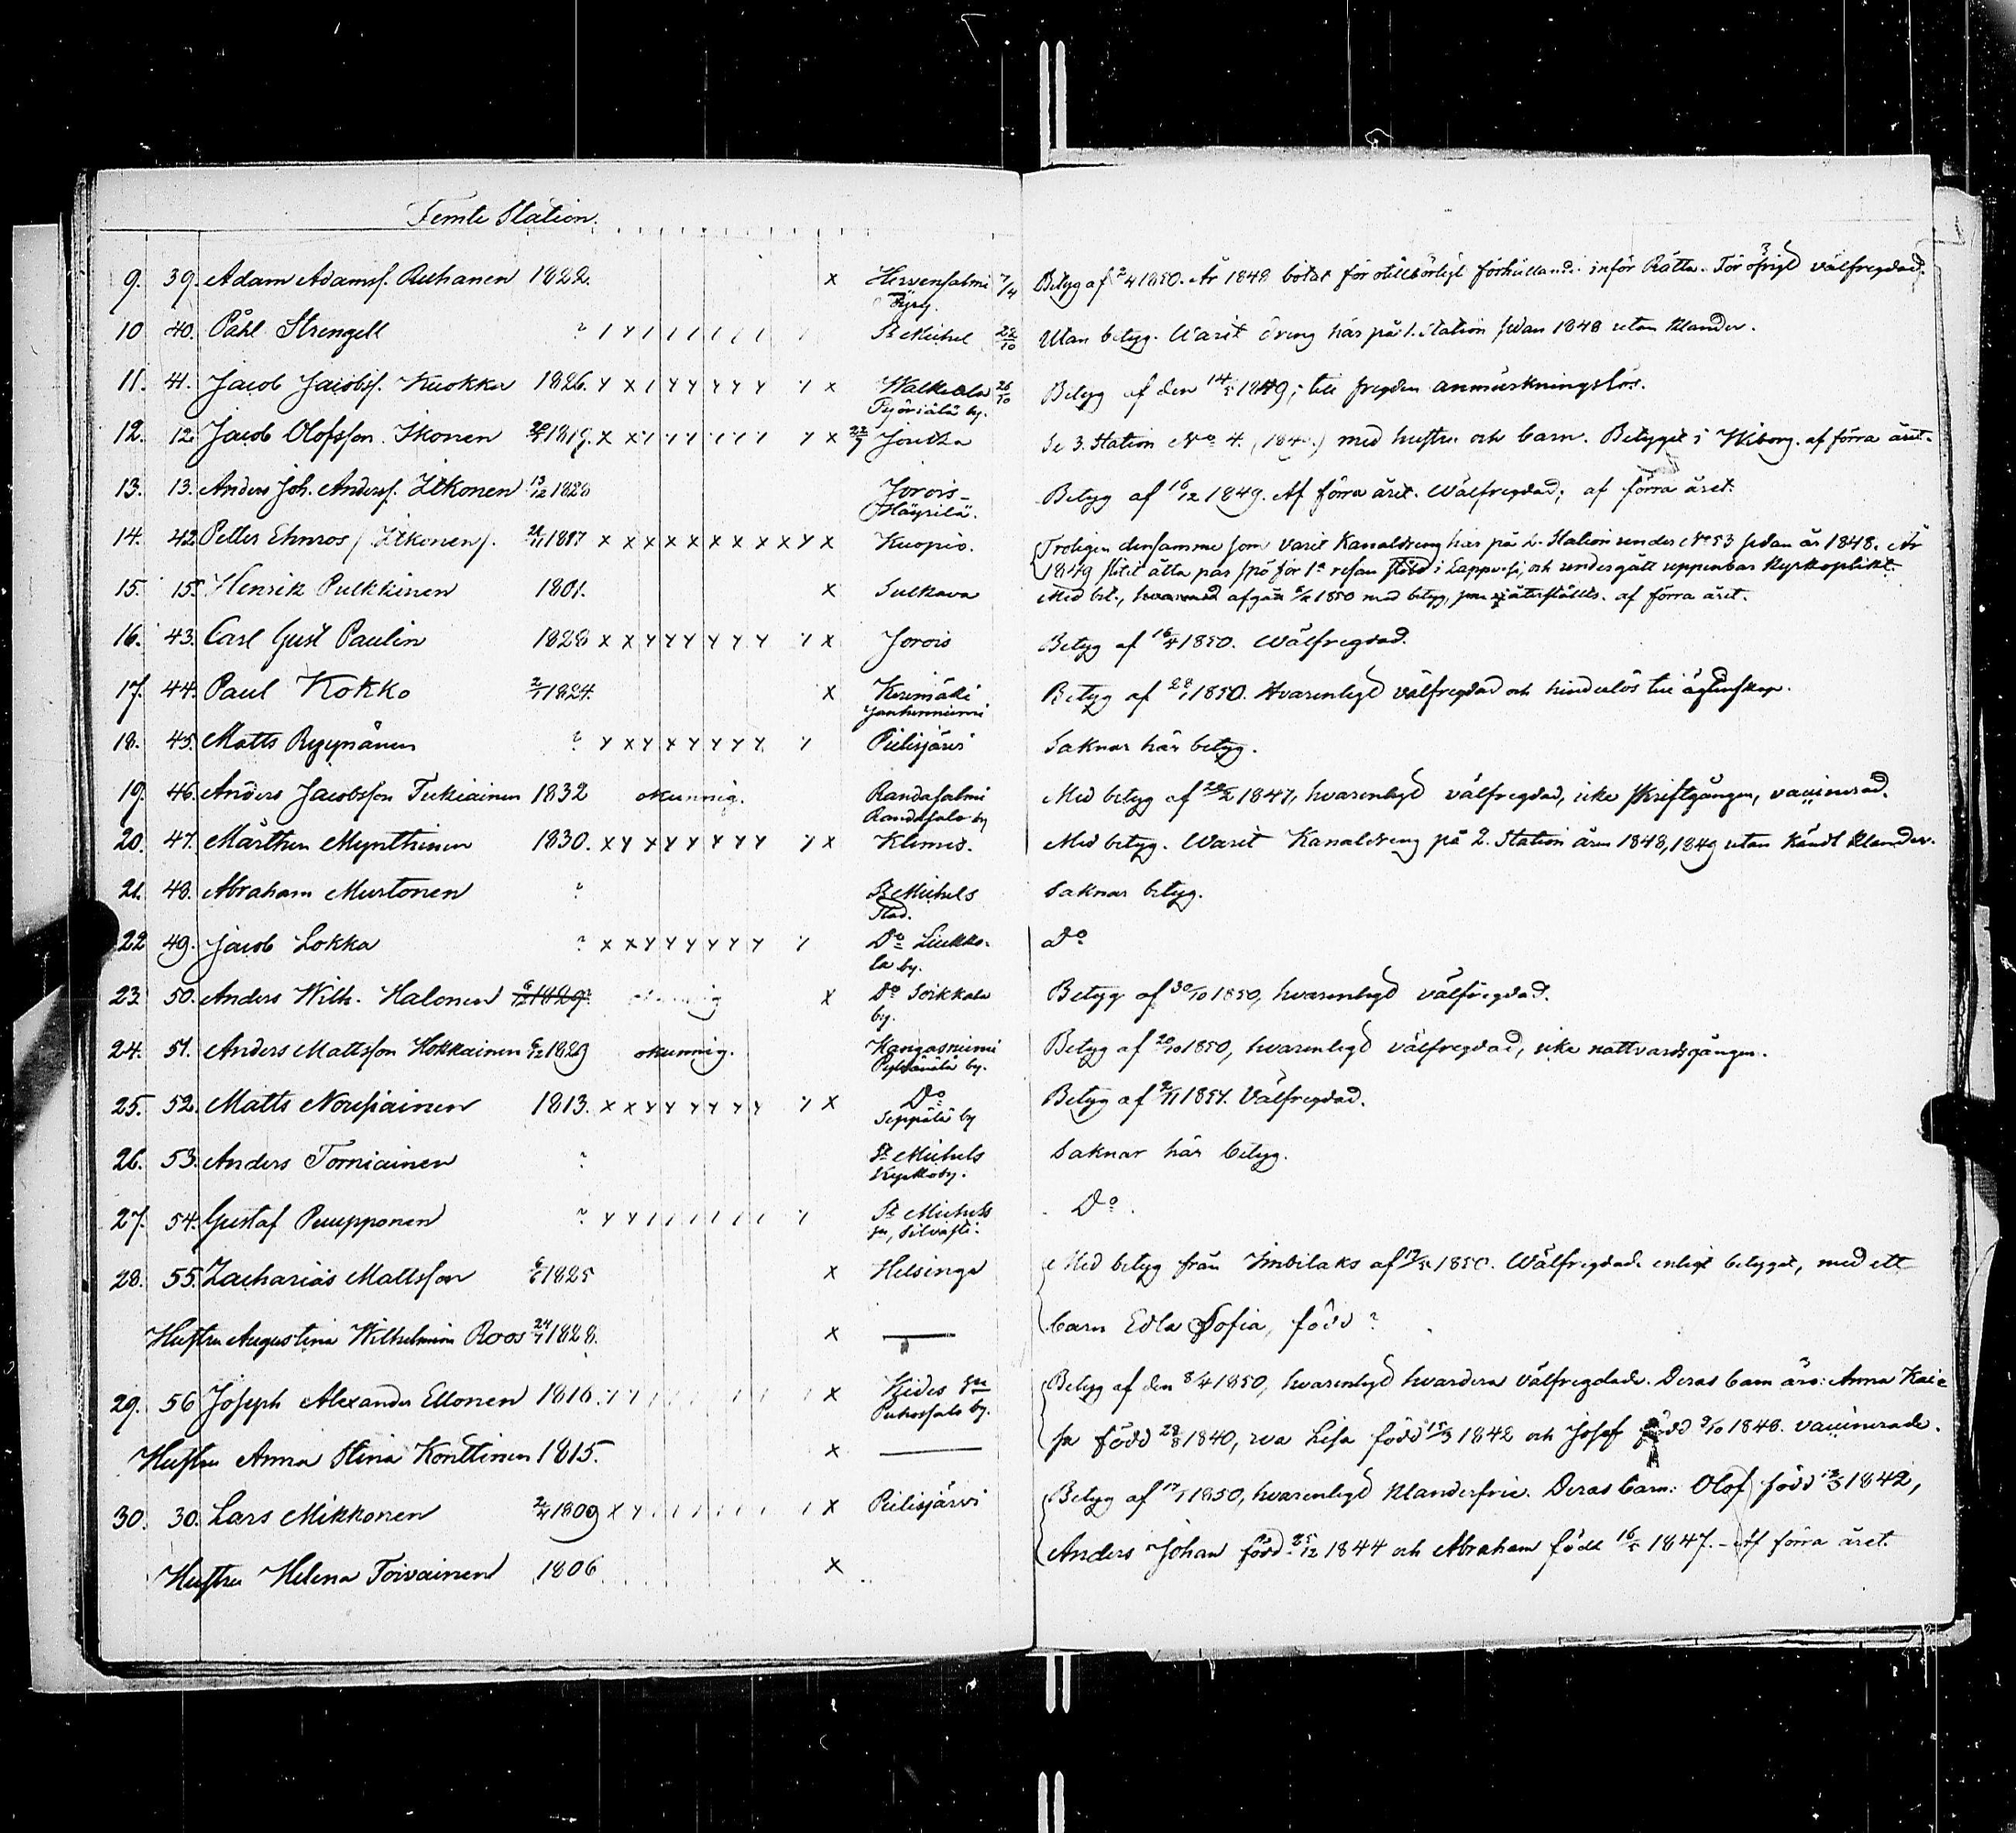 Femte Station.
9. 39. Adam Adamss. Reihanen 1822. x Hirvensalmi 7/4 Betyg af 2/4 1850. År 1848 bötat för otillbörligt förhållande inför Rätta. För öfrigt välfregdad.
10 40. Påhl Strengell ? St Michel 22/10 Utan betyg. Warit dreng här på 1. Station sedan 1848 utan klander.
11. 41. Jacob Jacobss. Kuokka 1826. x Walkeala 26/10 Betyg af den 14/5 1849; till fregden anmärkningslös.
by.
12. 12. Jacob Olofsson Ikonen 1819. x x x 22/7 Joutsa Se 3. Station No 4. med hustru och barn. Betyget i Wiborg. af förra året.
13. 13. Anders Joh. Anderss. Itkonen 13/12 1828 Jorois- Betyg af 16/12 1849. Af förra året. Wälfregdad; af förra året.
Häyrilä.
14. 42. Petter Ehnros / Itkonen /. 1817 x x x x x x x x x x x Kuopio. Troligen densamme som varit Kanaldreng här på 2. Station under No 53 sedan år 1848. År
1849 slitit åtta par spö för 1a resan stöld i Lappvesi, och undergått uppenbar kyrkoplikt.
15. 15. Henrik Pulkkinen 1801. x Sulkava Med bet., afgån 1850 med betyg, som återställts. af förra året.
16. 43. Carl Gust Paulin 1828 x x x x x x x x x x Jorois Betyg af 16/4 1850. Wälfregdad.
17. 44. Paul Kokko 1824. x Kerimäki Betyg af 28/1 1850. Hvarenligt välfregdad och hinderlös till ägtenskap.
18. 45. Matts Ryynänen ? x x x x x x x x Pielisjärvi Saknar här betyg.
19. 46. Anders Jacobsson Tukiainen 1832 okunnig. Randasalmi Med betyg af 1847, hvarenligt välfregdad, icke skriftgången, vaccinerad.
Randasalo by
20. 47. Mårthen Mynttinen 1830. x x x x x x x x x x Klemis. Med betyg. Warit Kanaldreng på 2. Station åren 1848, 1849 utan kändt klander.
21. 48. Abraham Murtonen ? St Michels Saknar betyg.
Stad.
22 49. Jacob Lokka ? x x x x x x x x Do Liukko- Do
la by.
23. 50. Anders Wilh. Halonen x Do Soikkala Betyg af 30/10 1850, hvarenligt välfregdad.
by.
24. 51. Anders Mattsson Hokkainen 6/12 1829 okunnig. Kangasniemi Betyg af 20/10 1850, hvarenligt välfregdad, icke nattvardsgången.
by.
25. 52. Matts Nousiainen 1813. x x x x x x x x x x Do Betyg af 1851. Välfregdad.
Seppälä by
26. 53. Anders Torniainen ? St Michels Saknar här betyg.
Kyrkoby.
27. 54. Gustaf Puupponen ? St Michels Do.
28. 55. Zacharias Mattsson 1825 x Helsinge Med betyg från Imbilaks af 1850. Wälfregdade enligt betyget, med ett
Hustru Augustina Wilhelmina Roos 1828. x — barn Edla Sofia, född?
29. 56 Joseph Alexander Ellonen 1816. x Kides Betyg af den 8/4 1850, hvarenligt hvardera välfregdade. Deras barn äro: Anna Kai-
by.
Hustru Anna Stina Konttinen 1815. x — sa född 28/8 1840, Lisa född 15/3 1842 och Josef född 9/10 1848. vaccinerade.
30. 30. Lars Mikkonen 1809 x x Pielisjärvi Betyg af 17/1 1850, hvarenligt klanderfrie. Deras barn: Olof född 1842,
Hustru Helena Toivainen 1806 x Anders Johan född 25/12 1844 och Abraham född 16/5 1847. Af förra året.